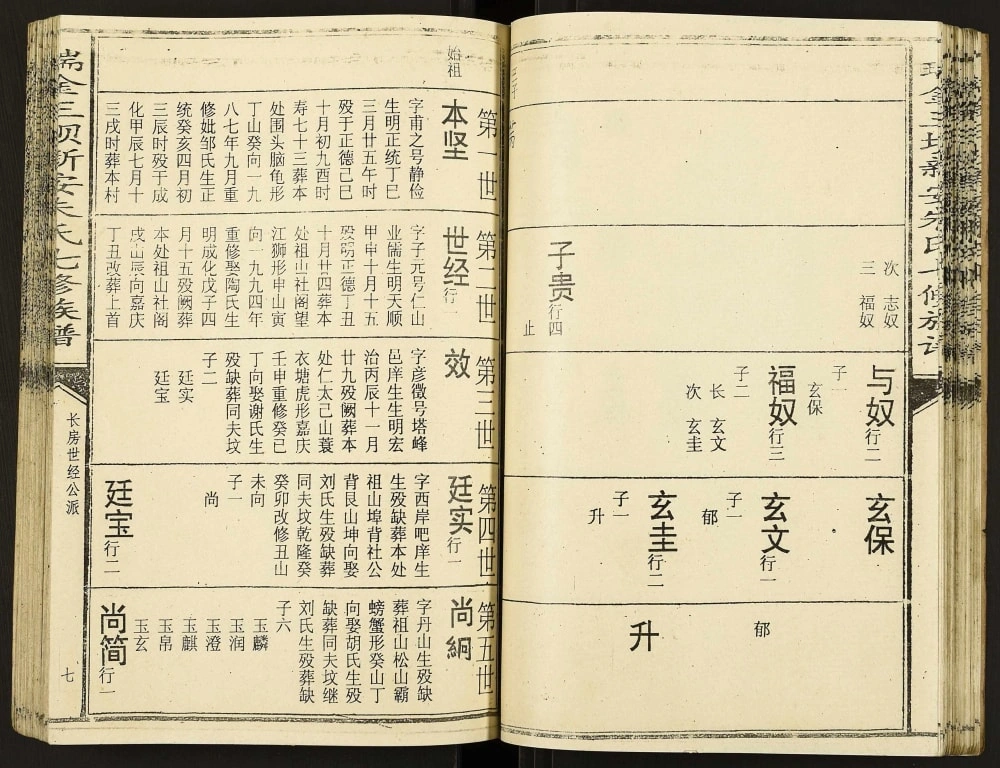 次 志奴
三 福奴
子贵行四
止
与奴行二
子一
玄保
福奴行三
子二
长 玄文
次 玄圭
玄保
玄文行一
子一
郁
玄圭行二
子一
升
郁
升
瑞金三坝新安朱氏七修族谱
长房世经公派
七
始祖
第一世
本坚
字甫之号静俭
生明正统丁巳
三月廿五午时
殁于正德己巳
十月初九酉时
寿七十三葬本
处围头脑龟形
丁山癸向一九
八七年九月重
修妣邹氏生正
统癸亥四月初
三辰时殁于成
化甲辰七月十
三戌时葬本村
第二世
世经行一
字子元号仁山
业儒生明天顺
甲申十月十五
殁明正德丁丑
十月廿四葬本
处祖山社阁望
江狮形申山寅
向一九九四年
重修娶陶氏生
明成化戊子四
月十五殁阙葬
本处祖山社阁
戌山辰向嘉庆
丁丑改葬上首
第三世
效
字彦微号塔峰
邑庠生生明宏
治丙辰十一月
廿九殁阙葬本
处仁太己山蓑
衣塘虎形嘉庆
壬申重修癸已
丁向娶谢氏生
殁缺葬同夫坟
子二
廷实
廷宝
第四世
廷实行一
字西岸吧庠生
生殁缺葬本处
祖山埠背社公
背艮山坤向娶
刘氏生殁缺葬
同夫坟乾隆癸
癸卯改修丑山
未向
子一
尚
廷宝行二
第五世
尚絅
字丹山生殁缺
葬祖山松山霸
螃蟹形癸山丁
向娶胡氏生殁
缺葬同夫坟继
刘氏生殁葬缺
子六
玉麟
玉润
玉澄
玉麒
玉帛
玉玄
尚简行一